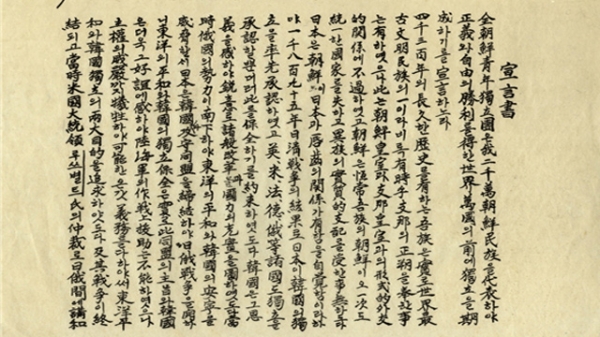 宣言書
全朝鮮青年獨立團은我二千萬朝鮮民族을代表하야
正義와自由의勝利를得한世界萬國의前에獨立을期
成하기를宣言하노라
四千三百年의長久한歷史를有하는吾族은實로世界最
古文明民族의一이라비록有時乎支那의正朔을奉한事
는有하엿으나此는朝鮮皇室과支那皇室과의形式的外交
的關係에不過하엿고朝鮮은恒常吾族의朝鮮이오一次도
統一한國家를失하고異族의實質的支配를受한事無하도다
日本은朝鮮이日本과唇齒의關係가有함을自覺함이라하
야一千八百九十五年日清戰爭의結果로日本이韓國의獨
立을率先承認하엿고英、米、法、德、俄等諸國도獨立을
承認할뿐더러此를保全하기를約束하엿도다韓國은그恩
義를感하야銳意로諸般改革과國力의充實을圖하엿도다當
時俄國의勢力이南下하야東洋의平和와韓國의安寧을
威脅할새日本은韓國과攻守同盟을締結하야日俄戰爭을開하
니東洋의平和와韓國의獨立保全은實로此同盟의主旨와韓國
은더욱그好誼에感하야陸海軍의作戰上援助는不能하엿으나
主權의威嚴까지犧牲하야可能한온갓義務를다하야써東洋平
和와韓國獨立의兩大目的을追求하얏도다及其戰爭이終
結되고當時米國大統領루쓰벨트氏의仲裁로日俄間에講和